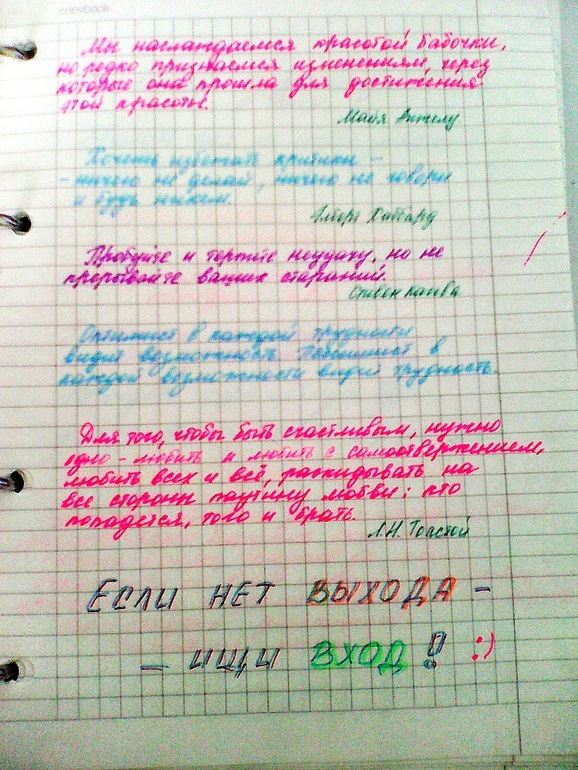 copybook
Мы наслаждаемся красотой бабочки,
но редко признаемся изменениям, через
которые она прошла для достижения
этой красоты.
Майя Анжелу
Хочешь избежать критики –
– ничего не делай, ничего не говори
и будь никем.
Элберт Хаббард
Пробуйте и терпите неудачу, но не
прерывайте ваших стараний.
Стивен Каггва
Оптимист в каждой трудности
видит возможность. Пессимист в
каждой возможности видит трудность.
Для того, чтобы быть счастливым, нужно
одно – любить и любить с самоотвержением,
любить всех и всё, раскидывать на
все стороны паутину любви: кто
попадется, того и брать.
Л.Н. Толстой
Если нет выхода –
– ищи вход!! :)